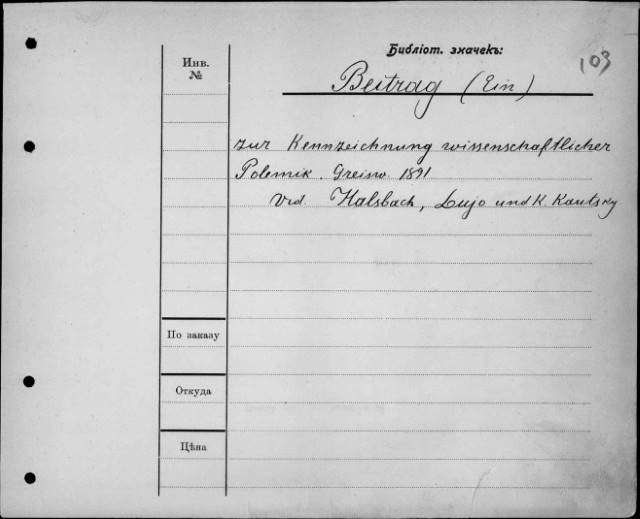 Библіот. значекъ:
103
Beitrag (Ein)
Инв.
№
zur Kennzeichnung wissenschaftlicher
Polemik. Greisw. 1891
Vid. Halsbach, Lujo und K. Kautsky
По заказу
Откуда
Цѣна